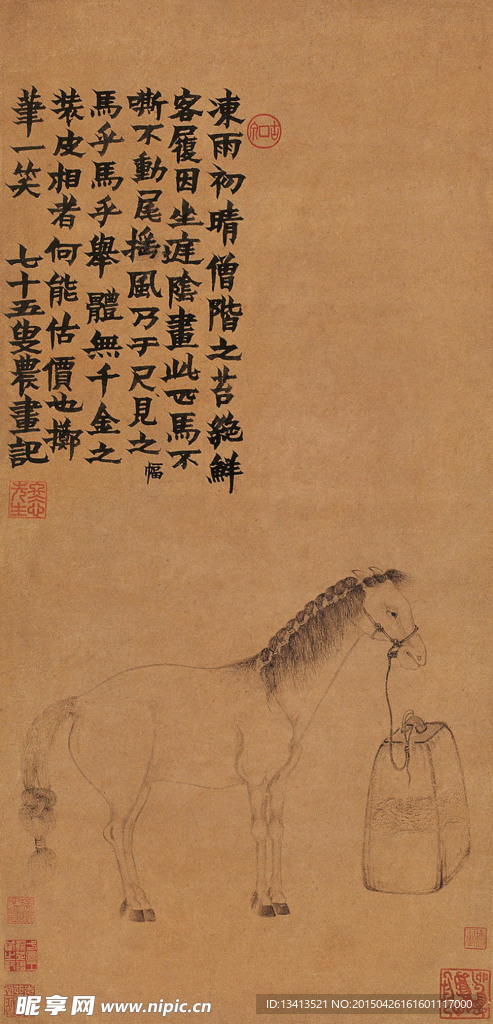 凍雨初晴僧階之苔絶鮮
客履因坐庭陰畫此匹馬不
嘶不動尾搖風乃于尺見之
幅
馬乎馬乎舉體無千金之
裝皮相者何能估價也擲
筆一笑 七十五叟農畫記
昵享网 www.nipic.cn
ID:13413521 NO:20150426161601117000